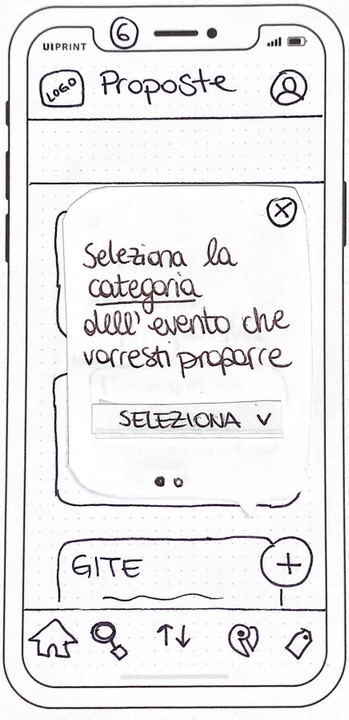 UIPRINT
6
LOGO
Proposte
Seleziona la
categoria
dell' evento che
vorresti proporre
SELEZIONA
GITE